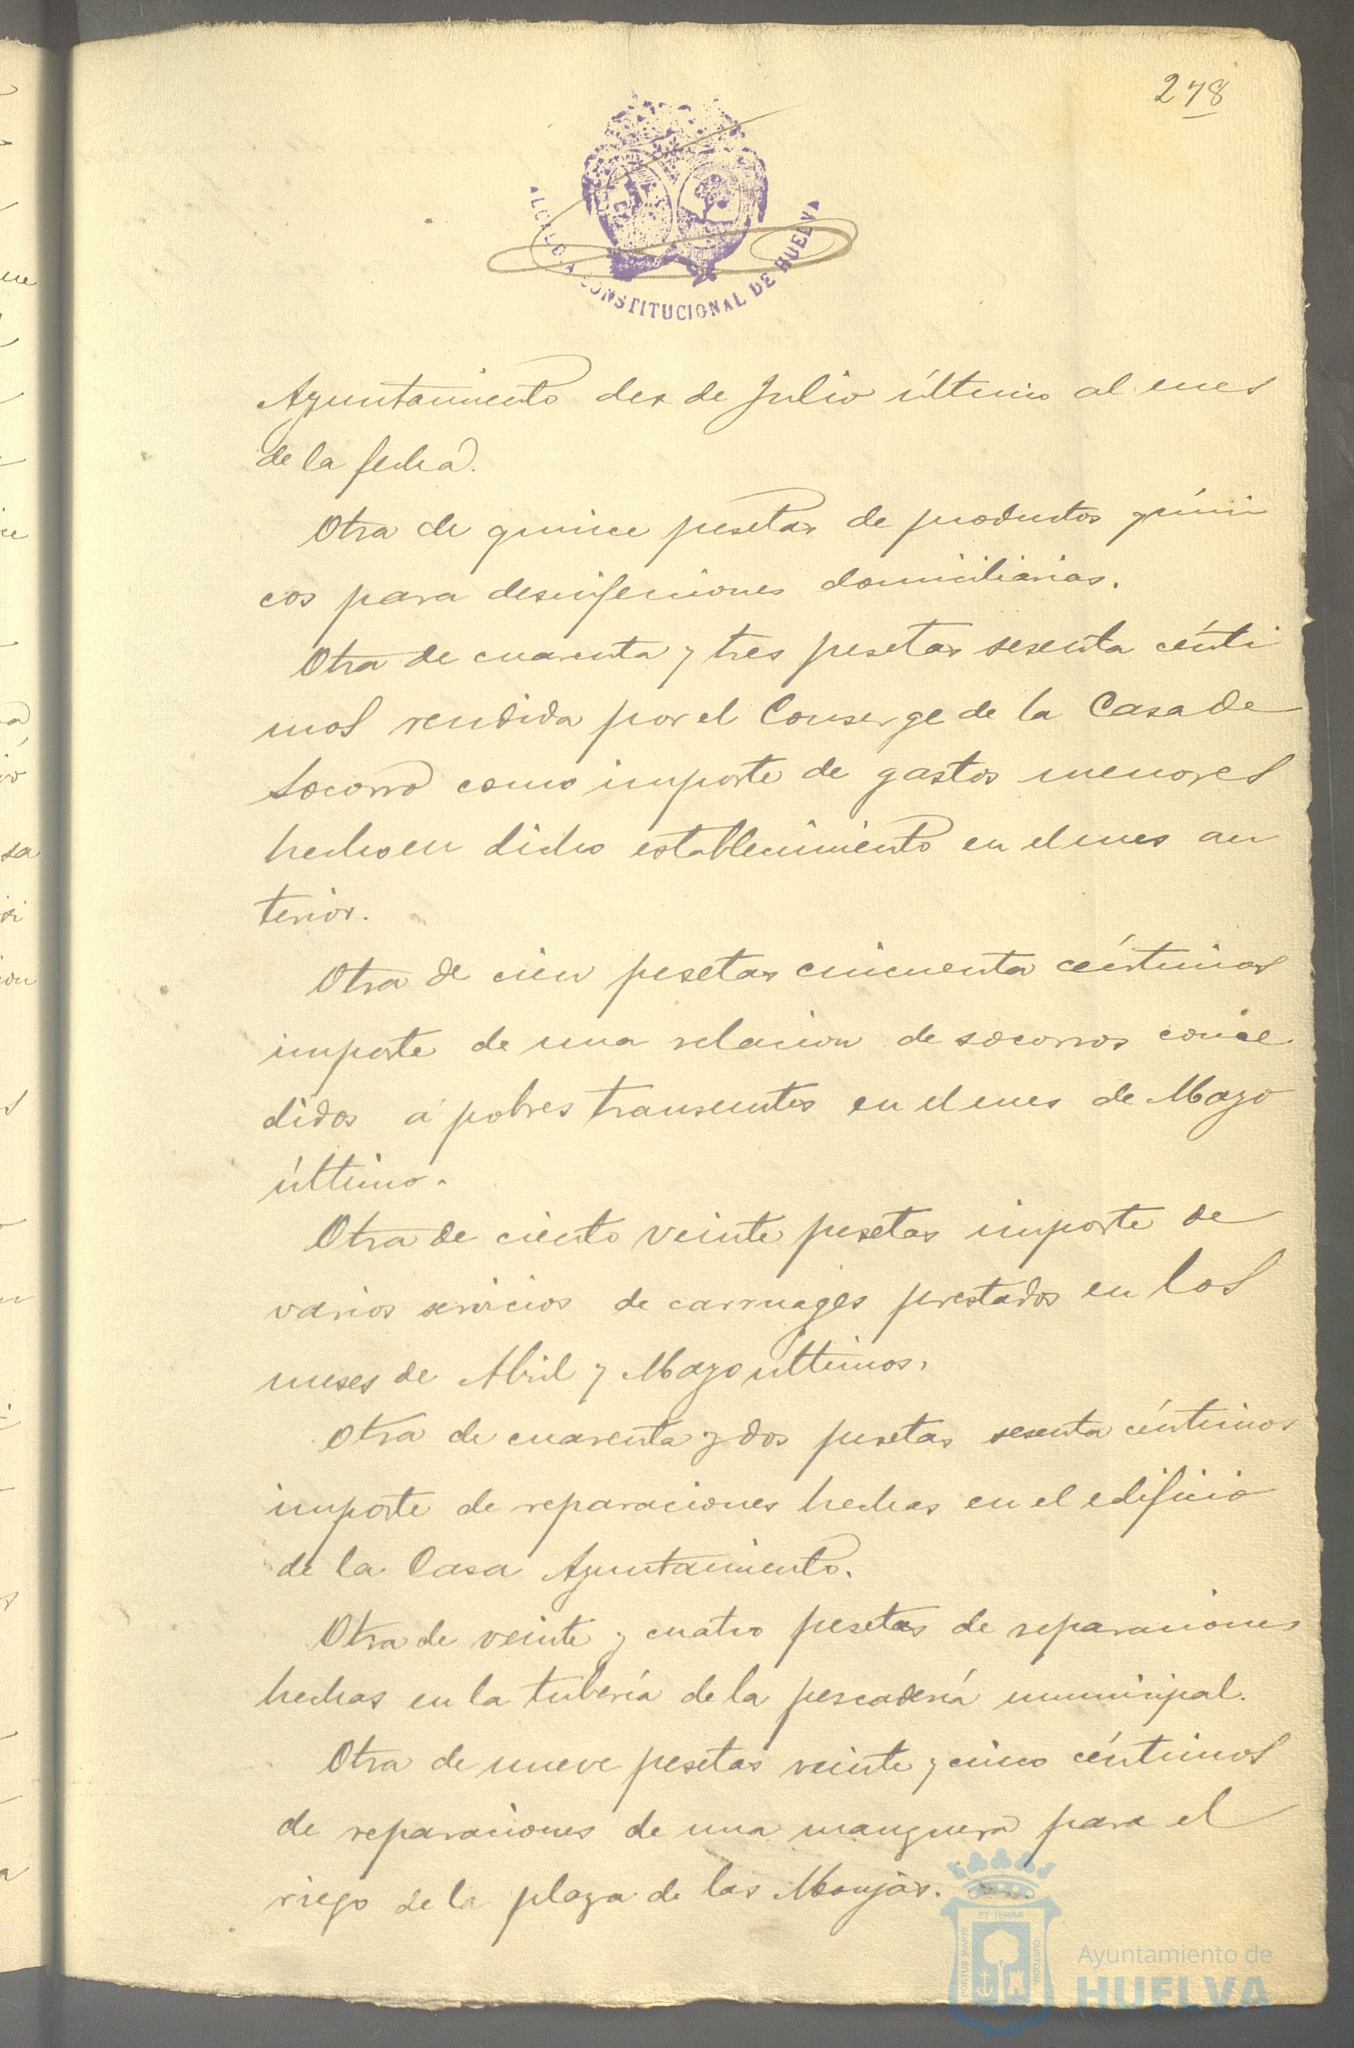 278
ALCALDIA CONSTITUCIONAL DE HUELVA
Ayuntamiento des de Julio último al mes
de la fecha.
Otra de quince pesetas de productos quimi
cos para desinfecciones domiciliarias.
Otra de cuarenta y tres pesetas sesenta cénti
mos rendida por el Conserge de la Casa de
Socorro como importe de gastos menores
hecho en dicho establecimiento en el mes an
terior.
Otra de cien pesetas cincuenta céntimos
importe de una relacion de socorros conce
didos á pobres transeuntes en el mes de Mayo
último.
Otra de ciento veinte pesetas importe de
varios servicios de carruages prestados en los
meses de Abril y Mayo ultimos.
Otra de cuarenta y dos pesetas sesenta céntimos
importe de reparaciones hechas en el edificio
de la Casa Ayuntamiento.
Otra de veinte y cuatro pesetas de reparaciones
hechas en la tubería de la pescadería municipal.
Otra de nueve pesetas veinte y cinco céntimos
de reparaciones de una manguera para el
riego de la plaza de las Monjas.
PORTUS MARIS ET TERRAE CUSTODIA
Ayuntamiento de
HUELVA